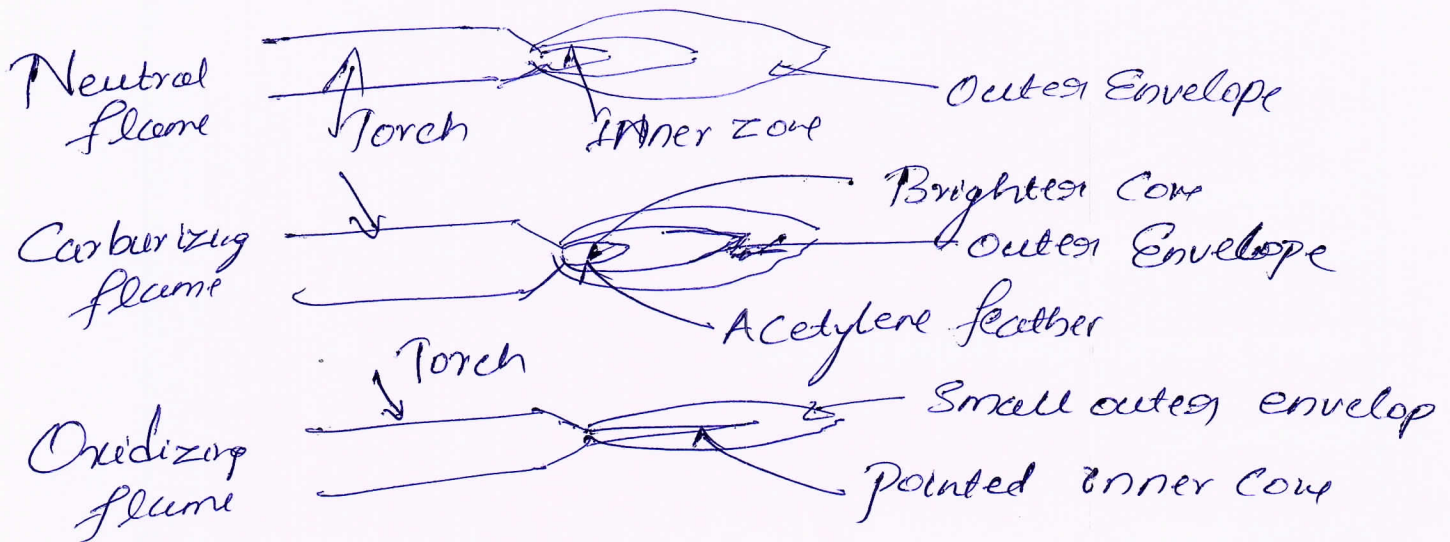 Neutral
flame
Torch
Inner zone
Outer Envelope
Carburizing
flame
Brighter Cone
Outer Envelope
Acetylene feather
Torch
Oxidizing
flame
Small outer envelop
Pointed inner Cone